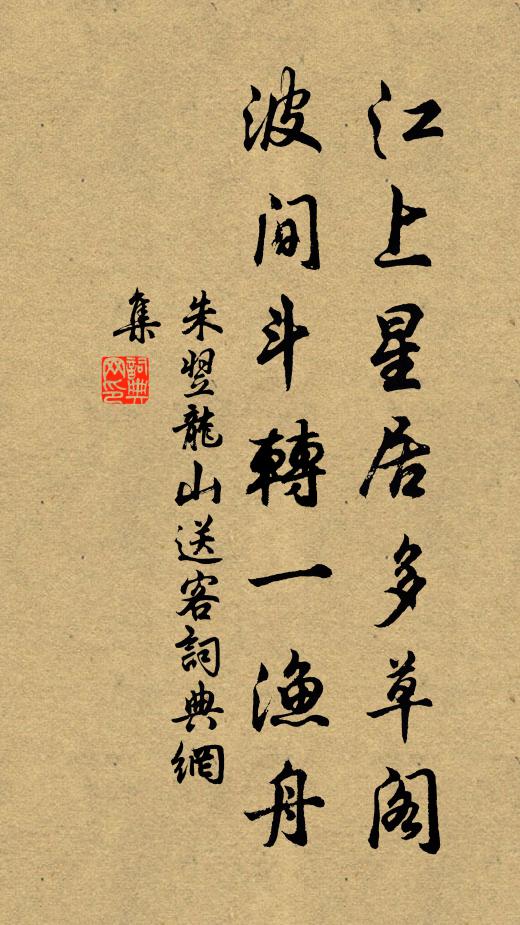 江上星居多草阁
波间斗轉一漁舟
朱翌龍山送客詞典網
集
詞典网印